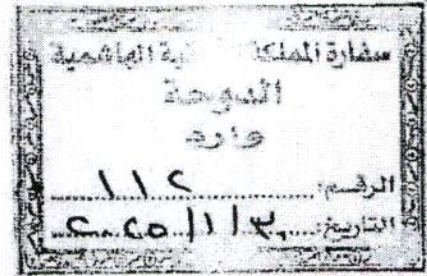 سفارة المملكة الأردنية الهاشمية
الدوحة
وارد
الرقم: ١١٢
التاريخ: ٢٠٢٥/١/٣٠